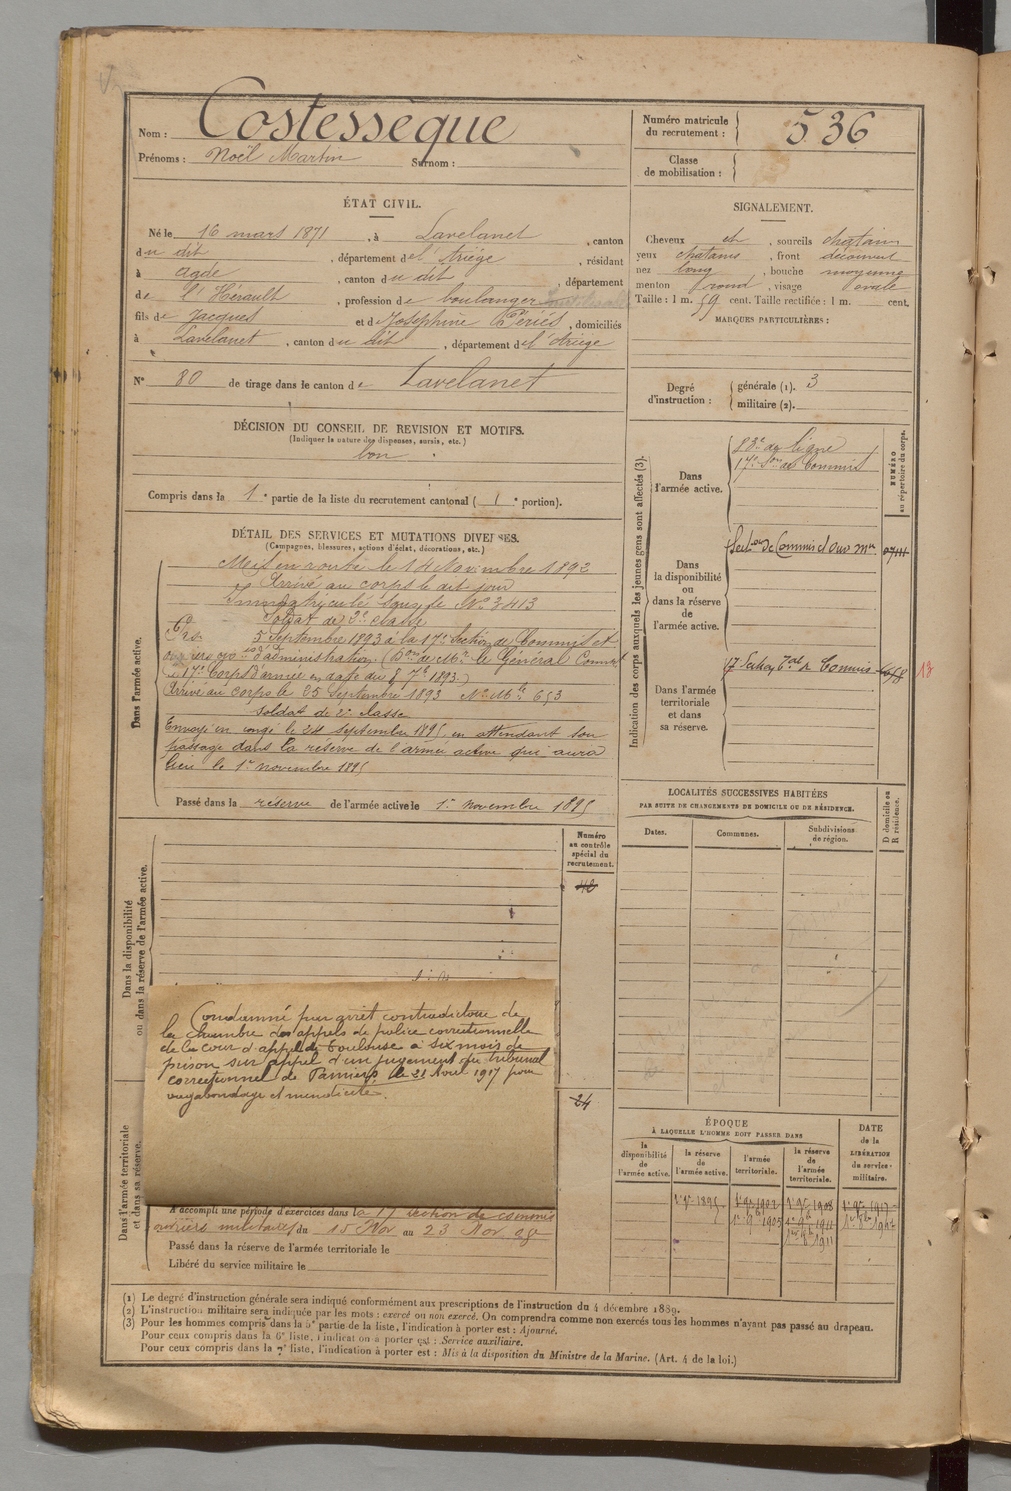 Nom : Costesseque
Prénoms : Noël Martin Surnom :
Numéro matricule
du recrutement : 536
Classe
de mobilisation :
ÉTAT CIVIL.
Né le 16 mars 1871, à Lavelanet, canton
du dit, département de l'Ariège, résidant
à Agde, canton du dit, département
de l'Hérault, profession de boulanger
fils de Jacques et de Joséphine Périés, domiciliés
à Lavelanet, canton du dit, département de l'Ariège
N° 80 de tirage dans le canton de Lavelanet
SIGNALEMENT.
Cheveux ch, sourcils chatain
yeux chatains, front découvert
nez long, bouche moyenne
menton rond, visage ovale
Taille : 1 m. 59 cent. Taille rectifiée : 1 m. cent.
MARQUES PARTICULIÈRES :
Degré
d'instruction :
générale (1). 3
militaire (2).
DÉCISION DU CONSEIL DE REVISION ET MOTIFS.
(Indiquer la nature des dispenses, sursis, etc.)
bon
Compris dans la 1e partie de la liste du recrutement cantonal (1e portion).
DÉTAIL DES SERVICES ET MUTATIONS DIVERSES.
(Campagnes, blessures, actions d'éclat, décorations, etc.)
Dans l'armée active.
Mis en route le 14 Novembre 1892
Arrivé au corps le dit jour
Immatriculé sous le N° 3413
Soldat de 2e classe
5 Septembre 1893 à la 17e Section de Commis et
d'administration (Don de Mr le Général Commt
le 17e Corps d'armée en date du 8 7bre 1893.)
Arrivé au corps le 25 Septembre 1893 N° Mle 653
Soldat de 2e classe
Envoyé en congé le 24 septembre 1895 en attendant son
passage dans la réserve de l'armée active qui aura
lieu le 1er novembre 1895
Passé dans la réserve de l'armée active le 1er novembre 1895
Indication des corps auxquels les jeunes gens sont affectés (3).
NUMÉRO
au répertoire du corps.
Dans
l'armée active.
83e de ligne
17e Son de Commis
Dans
la disponibilité
ou
dans la réserve
de
l'armée active.
Secton de Commis et Ouv
Dans l'armée
territoriale
et dans
sa réserve.
17 Section Tale de Commis
13
LOCALITÉS SUCCESSIVES HABITÉES
PAR SUITE DE CHANGEMENTS DE DOMICILE OU DE RÉSIDENCE.
Dates.
Communes.
Subdivisions
de région.
D domicile ou
R résidence.
Dans la disponibilité
ou dans la réserve de l'armée active.
Numéro
au contrôle
spécial du
recrutement.
Condamné par arrêt contradictoire de
la Chambre des appels de police correctionnelle
de la Cour d'appel de Toulouse à six mois de
prison sur appel d'un jugement du tribunal
correctionnel de Pamiers, le 21 Aout 1917 pour
vagabondage et mendicité.
24
Dans l'armée territoriale
et dans sa réserve.
A accompli une période d'exercices dans la 17 section de commis
ouvriers militaires du 15 Nov au 23 Nov
Passé dans la réserve de l'armée territoriale le
Libéré du service militaire le
ÉPOQUE
À LAQUELLE L'HOMME DOIT PASSER DANS
la
disponibilité
de
l'armée active.
la réserve
de
l'armée active.
l'armée
territoriale.
la réserve
de
l'armée
territoriale.
DATE
de la
LIBÉRATION
du service
militaire.
(1) Le degré d'instruction générale sera indiqué conformément aux prescriptions de l'instruction du 4 décembre 1889.
(2) L'instruction militaire sera indiquée par les mots : exercé ou non exercé. On comprendra comme non exercés tous les hommes n'ayant pas passé au drapeau.
(3) Pour les hommes compris dans la 5e partie de la liste, l'indication à porter est : Ajourné.
Pour ceux compris dans la 6e liste, l'indication à porter est : Service auxiliaire.
Pour ceux compris dans la 7e liste, l'indication à porter est : Mis à la disposition du Ministre de la Marine. (Art. 4 de la loi.)